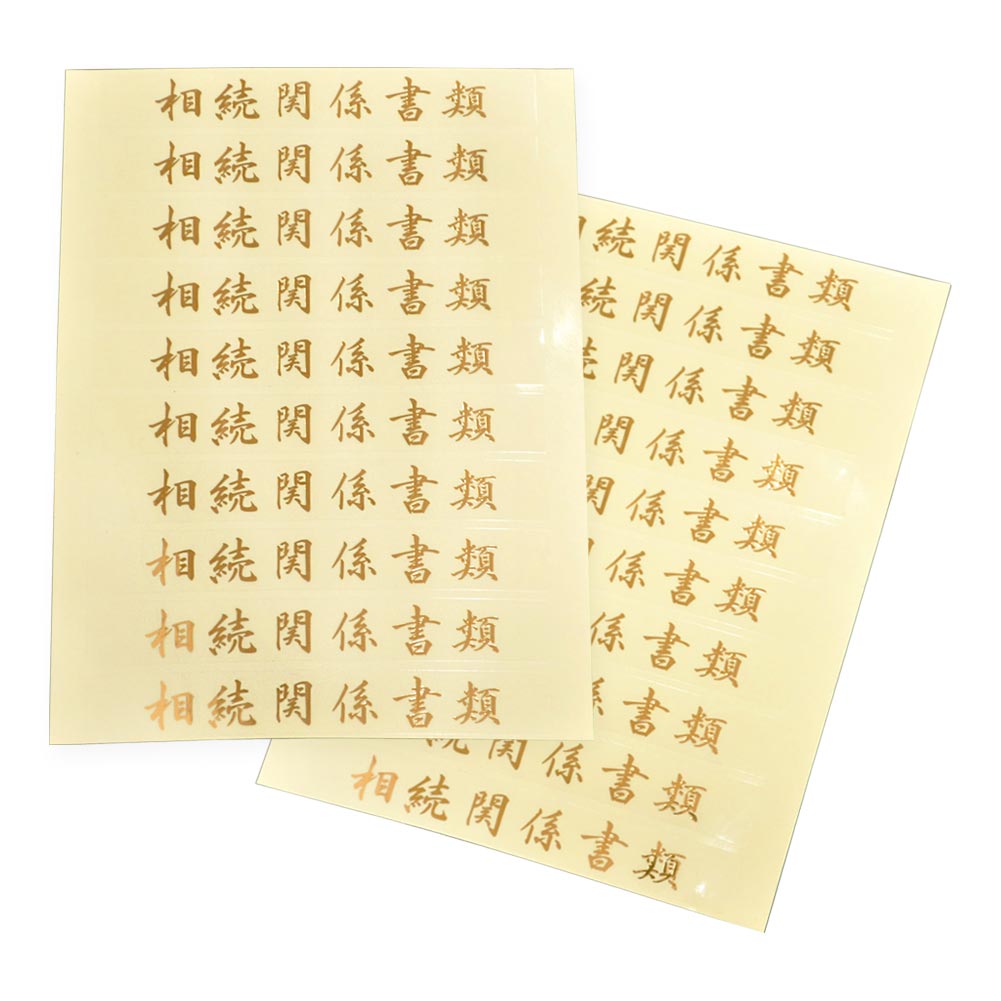 相続関係書類
相続関係書類
相続関係書類
相続関係書類
相続関係書類
相続関係書類
相続関係書類
相続関係書類
相続関係書類
相続関係書類
続関係書類
続関係書類
関係書類
関係書類
関係書類
係書類
係書類
書類
続関係書類
相続関係書類